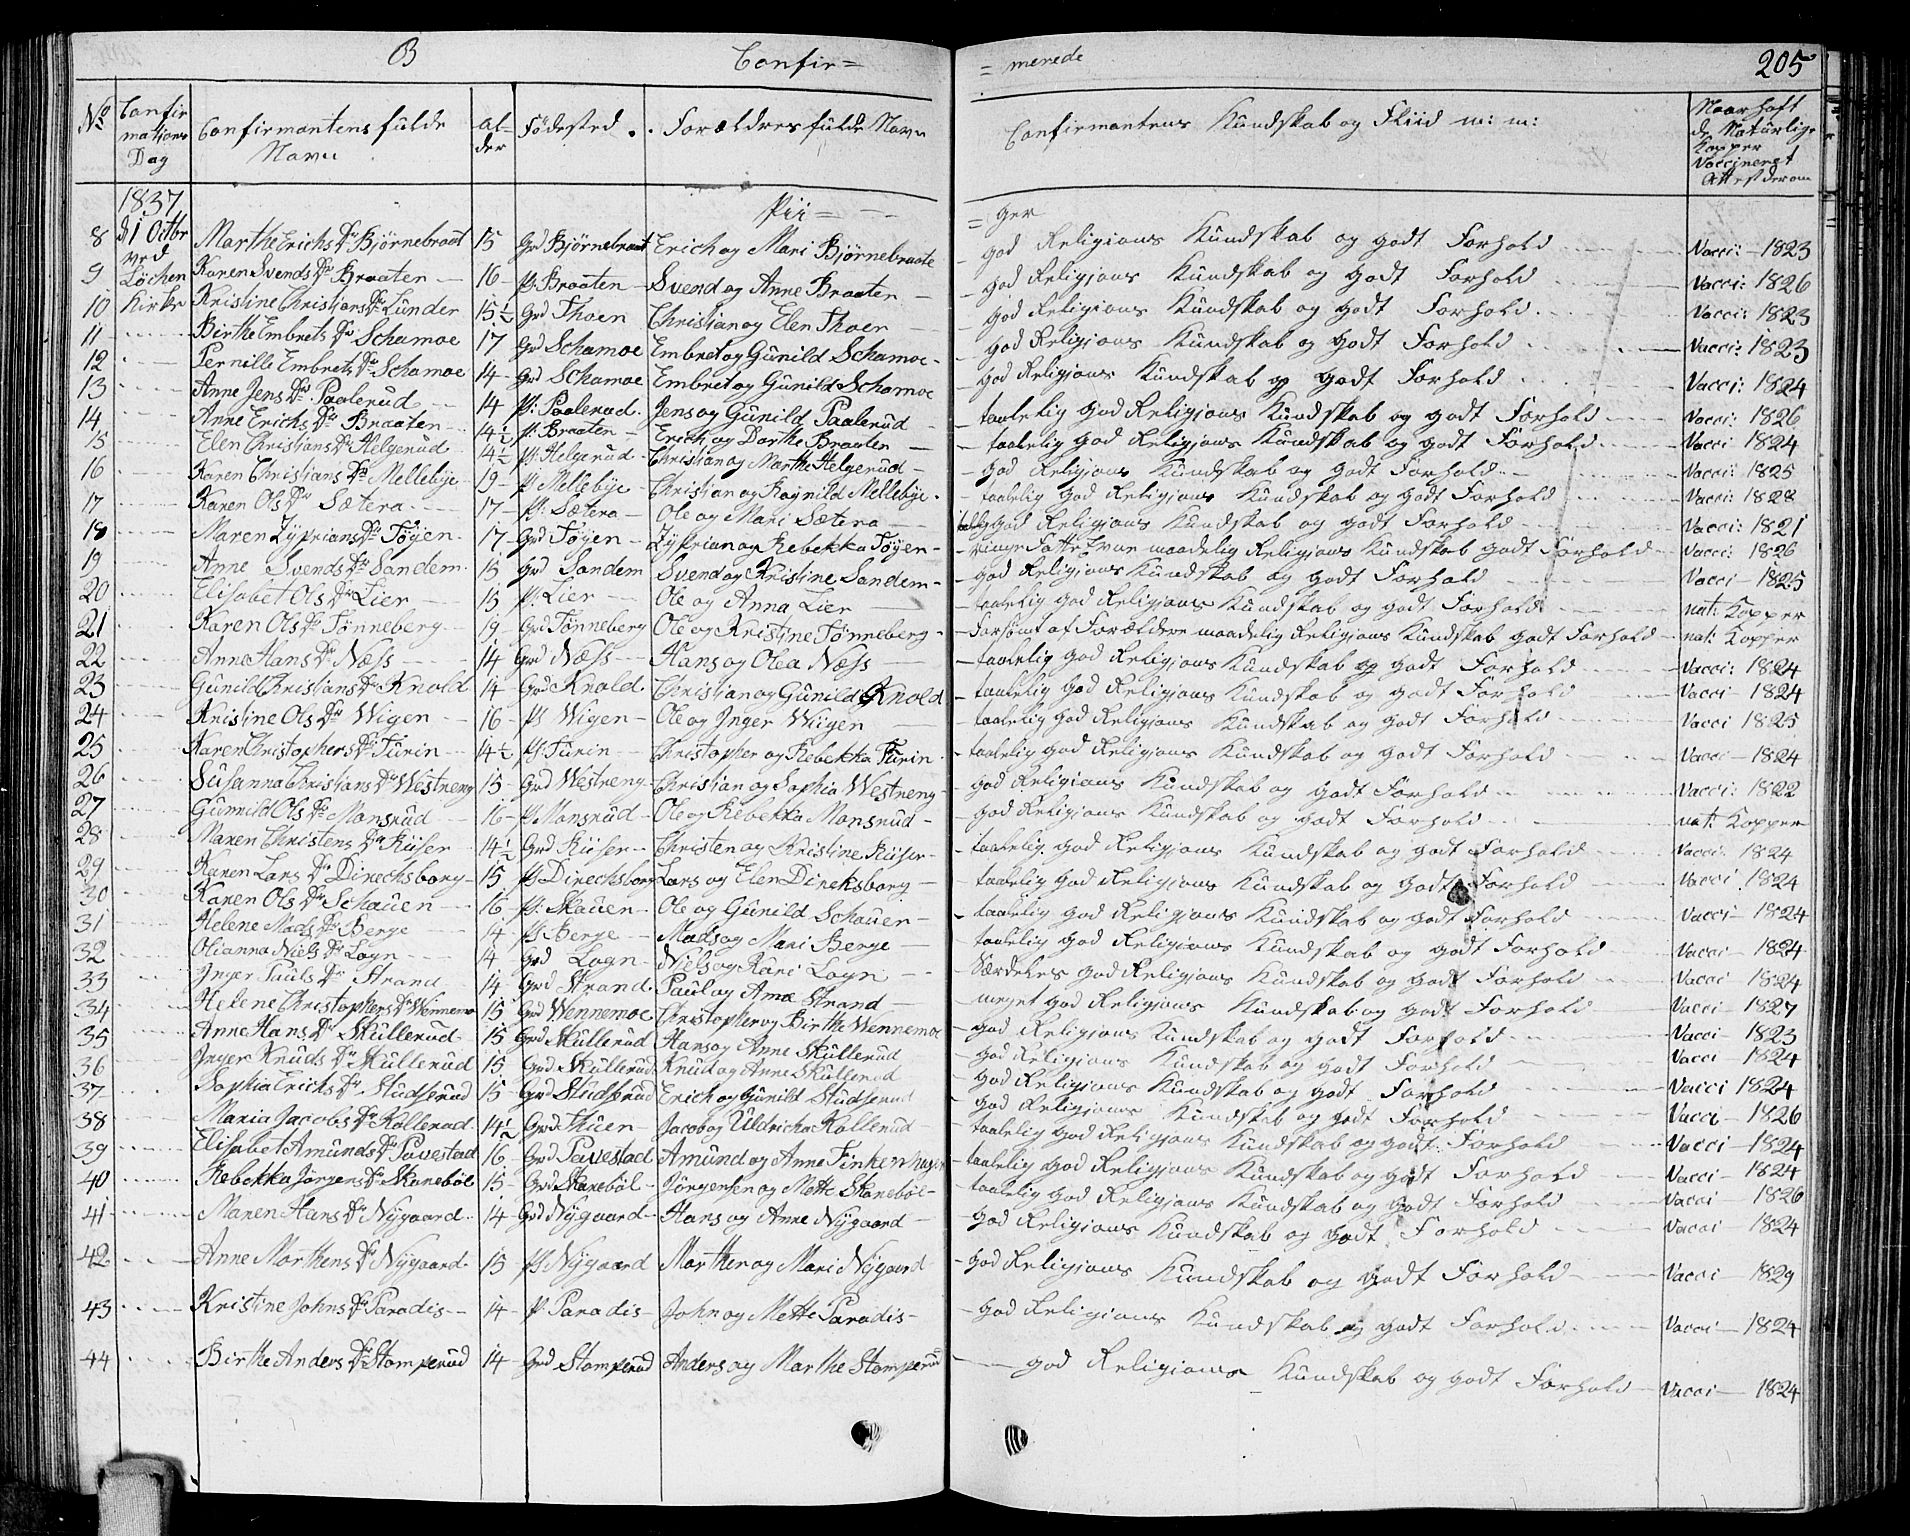 B Confir= = merede 205
No Confirmations Dag Confirmantens fulde Navn Alder Fødested Forældres fulde Navn Confirmantens Kundskab og Fliid m: m: Naar haft de Naturlige Kopper Vaccineret Attest derom
1837 Pii= = ger
8 d 1 Octbr Marthe Erichs Dr Bjørnebraat 15 Grd Bjørnebraat Erich og Mari Bjørnebraate god Religions Kundskab og godt Forhold Vacci: 1823
9 ved Løchen Karen Svends Dr Braaten 16 Pl: Braaten Svend og Anne Braaten god Religjons Kundskab og godt Forhold Vacci: 1826
10 Kirke Kristine Christians Dr Lunder 15½ Grd Thoen Christian og Elen Thoen god Religions Kundskab og godt Forhold Vacci: 1823
11 Birthe Embrets Dr Schamoe 17 Grd Schamoe Embret og Gunild Schamoe god Religjons Kundskab og godt Forhold Vacci: 1823
12 Pernille Embrets Dr Schamoe 14 Grd Schamoe Embret og Gunild Schamoe god Religjons Kundskab og godt Forhold Vacci: 1824
13 Anne Jens Dr Paalerud 14 Pl: Paalerud Jens og Gunild Paalerud taalelig god Religjons Kundskab og godt Forhold Vacci: 1826
14 Anne Erichs Dr Braaten 14½ Pl: Braaten Erich og Dorthe Braaten taalelig god Religjons Kundskab og godt Forhold Vacci 1824
15 Elen Christians Dr Helgerud 14½ Pl: Helgerud Christian og Marthe Helgerud god Religjons Kundskab og godt Forhold Vacci: 1825
16 Karen Christians Dr Mellebye 19 Pl Mellebye Christian og Ragnild Mellebye taalelig god Religjons Kundskab og godt Forhold Vacci: 1828
17 Karen Ols Dr Sætera 17 Pl: Sætera Ole og Mari Sætera god Religjons Kundskab og godt Forhold Vacci: 1821
18 Maren Zyprians Dr Tøyen 17 Grd Tøyen Zyprian og Rebekka Tøyen ringe Fatte Evne maadelig Religjons Kundskab godt Forhold Vacci: 1826
19 Anne Svends Dr Sandem 15 Grd Sandem Svend og Kristine Sandem god Religjons Kundskab og godt Forhold Vacci 1825
20 Elisabet Ols Dr Lier 15 Pl: Lier Ole og Anna Lier taalelig god Religjons Kundskab og godt Forhold nat: Kopper
21 Karen Ols Dr Tønneberg 19 Grd Tønneberg Ole og Kristine Tønneberg forsømt af Forældere maadelig Religjons Kundskab godt Forhold nat: Kopper
22 Anne Hans Dr Næss 14 Grd Næss Hans og Olea Næss taalelig god Religjons Kundskab og godt Forhold Vacci: 1824
23 Gunild Christians Dr Knold 14 Grd Knold Christian og Gunild Knold taalelig god Religjons Kundskab og godt Forhold Vacci 1824
24 Kristine Ols Dr Wigen 16 Pl Wigen Ole og Inger Wiigen taalelig god Religjons Kundskab og godt Forhold Vacci 1825
25 Karen Christophers Dr Turin 14½ Pl: Turin Christopher og Rebekka Turin taalelig god Religjons Kundskab og godt Forhold Vacci 1824
26 Susanna Christians Dr Westreng 15 Grd Westreng Christian og Sophia Westreng god Religions Kundskab og godt Forhold Vacci: 1822
27 Gunnild Ols Dr Monsrud 16 Pl Monsrud Ole og Rebekka Monsrud god Religions Kundskab og godt Forhold nat: Kopper
28 Maren Christens Dr Kuser 14½ Grd Kuser Christen og Kristine Kuser taalelig god Religjons Kundskab og godt Forhold Vacci: 1824
29 Karen Lars Dr Direchsborg 15 Pl Direchsborg Lars og Elen Direksborg taalelig god Religjons Kundskab og godt Forhold Vacci 1824
30 Karen Ols Dr Schauen 16 Pl: Skauen Ole og Gunild Schauen taalelig god Religjons Kundskab og godt Forhold Vacci 1824
31 Helene Mads Dr Berge 14 Pl Berge Mads og Mari Berge taalelig god Religions Kundskab og godt Forhold Vacci 1824
32 Olianna Niels Dr Logn 14 Grd Logn Niels og Kari Logn Særdeles god Religjons Kundskab og godt Forhold Vacci 1824
33 Inger Pauls Dr Strand 14 Grd Strand Paul og Strand meget god Religjons Kundskab og godt Forhold Vacci 1827
34 Helene Christophers Dr Wennemoe 15 Grd Wennemoe Christopher og Birthe Wennemoe god Religjons Kundskab og godt Forhold Vacci 1823
35 Anne Hans Dr Skullerud 15 Grd Skullerud Hans og Anne Skullerud god Religjons Kundskab og godt Forhold Vacci 1824
36 Inger Knuds Dr Skullerud 15 Grd Skullerud Knud og Anne Skullerud god Religjons Kundskab og godt Forhold Vacci 1824
37 Sophia Erichs Dr Studserud 15 Grd Studserud Erich og Gunild Studserud god Religjons Kundskab og godt Forhold Vacci 1826
38 Maria Jacobs Dr Kollerud 14½ Grd Thuen Jacob og Uldricha Kollerud taalelig god Religjons Kundskab og godt Forhold Vacci 1824
39 Elisabet Amunds Dr Pavestad 16 Grd Pavestad Amund og Anne Finkenhagen taalelig god Religjons Kundskab og godt Forhold Vacci 1824
40 Rebekka Jørgens Dr Skanebøl 15 Grd Skanebøl Jørgensen og Mette Skanebøl taalelig god Religjons Kundskab og godt Forhold Vacci 1826
41 Maren Hans Dr Nygaard 14 Grd Nygaard Hans og Anne Nygaard god Religions Kundskab og godt Forhold Vacci 1824
42 Anne Marthens Dr Nygaard 15 Pl Nygaard Marthen og Mari Nygaard god Religions Kundskab og godt Forhold Vacci 1829
43 Kristine Johns Dr Paradis 14 Pl Paradis John og Mette Paradis god Religions Kundskab og godt Forhold Vacci 1824
44 Birthe Anders Dr Stomperud 14 Grd Stomperud Anders og Marthe Stomperud god Religions Kundskab og godt Forhold Vacci 1824